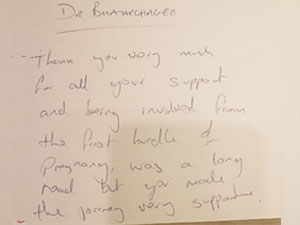 Dr
Thank you very much
for all your support
and being involved from
the first hurdle of
Pregnancy, was a long
road but you made
the journey very supportive.